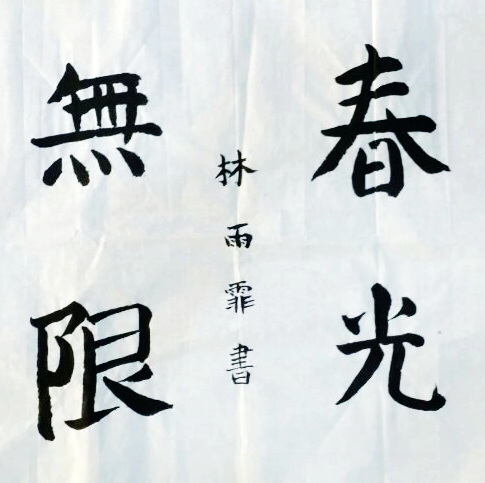 春光
無限
林雨霏書